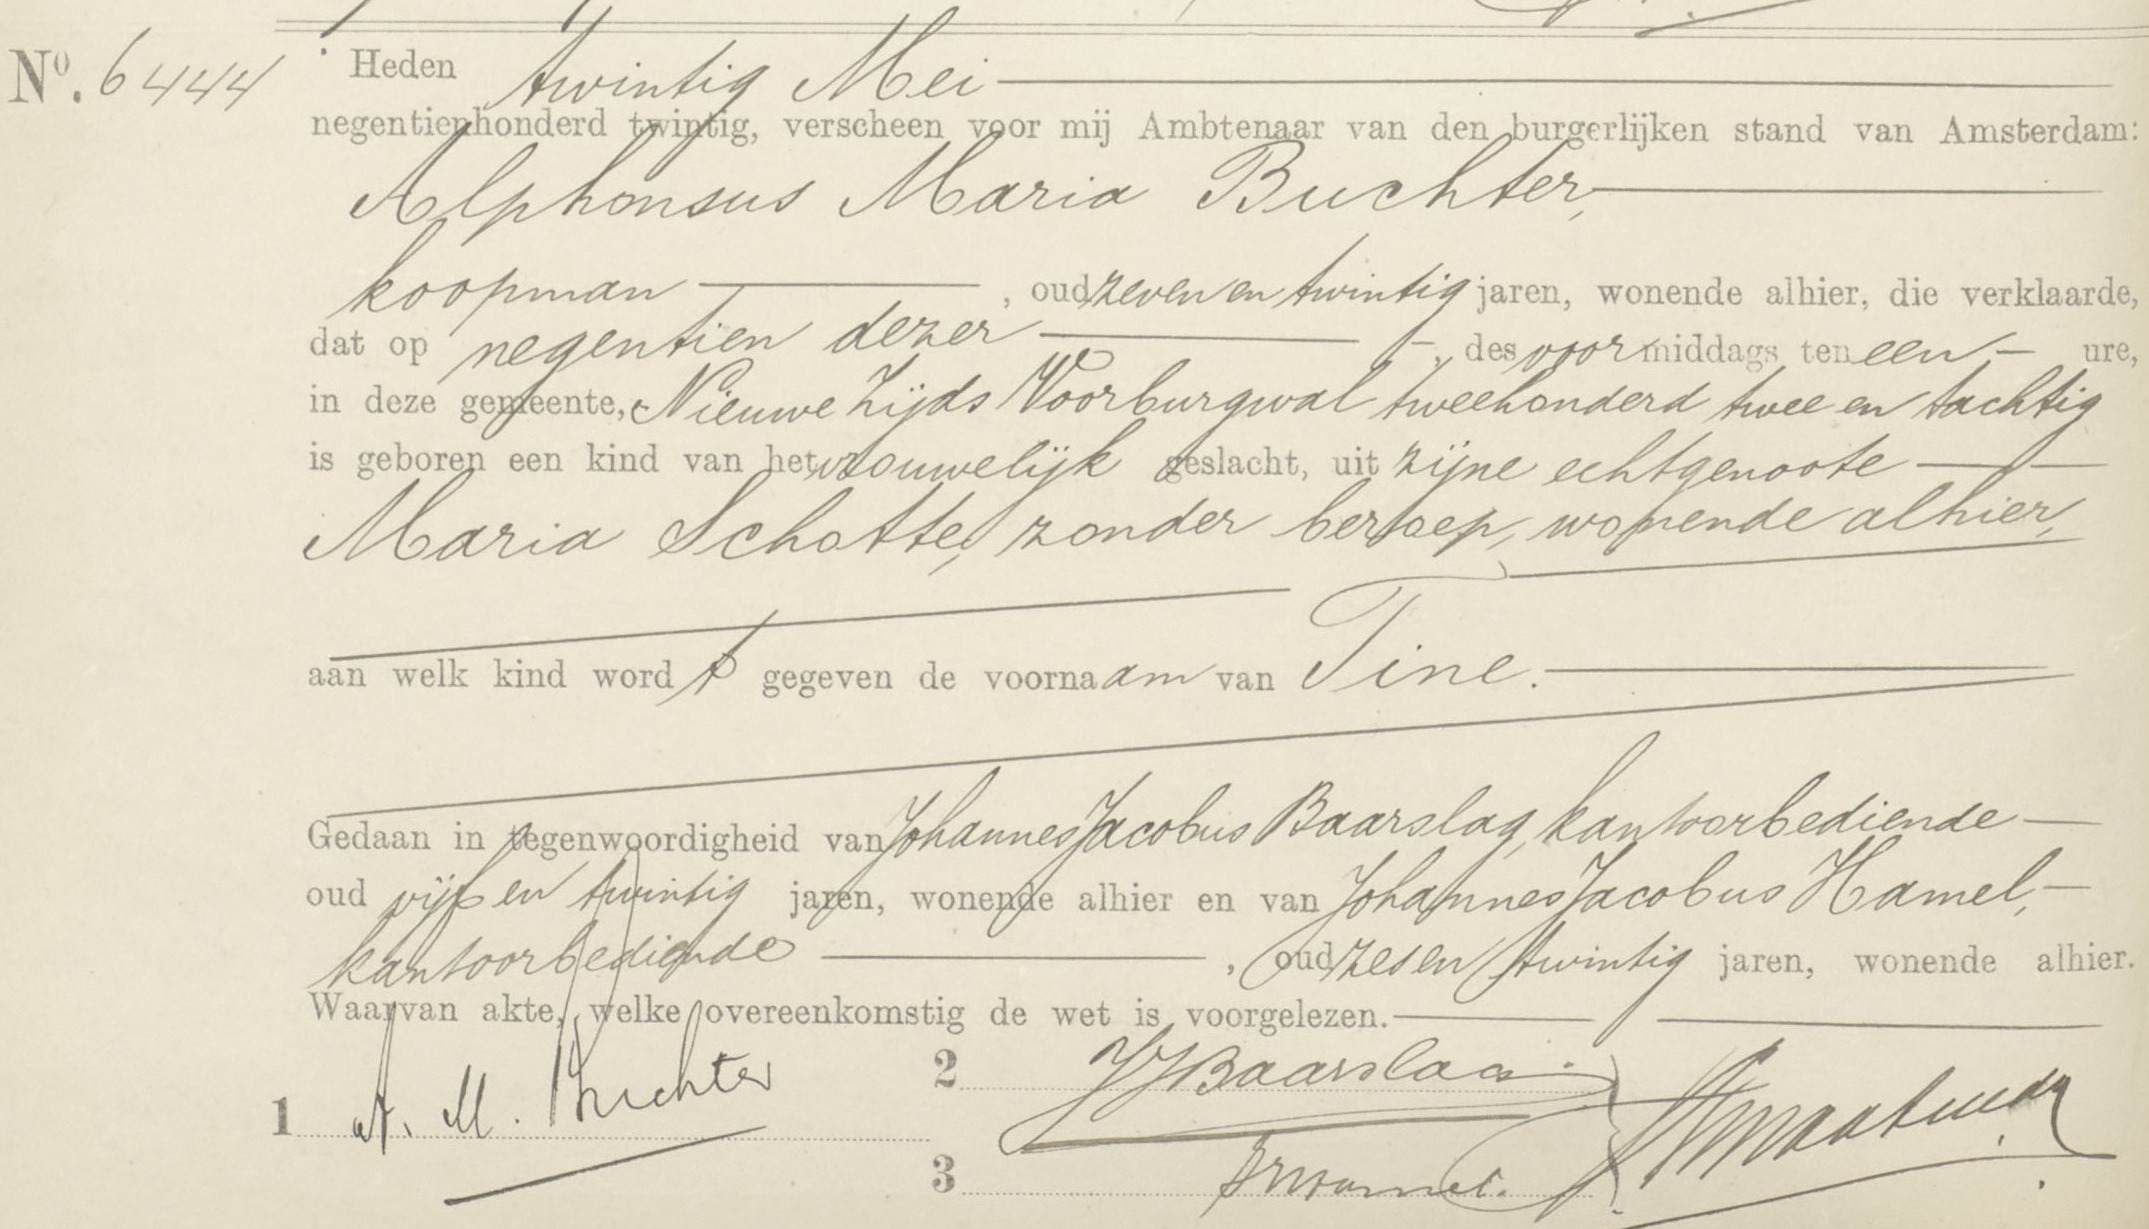 Nº. 6444
Heden twintig Mei
negentienhonderd twintig, verscheen voor mij Ambtenaar van den burgerlijken stand van Amsterdam:
Alphonsus Maria Buchter,
koopman, oud zeven en twintig jaren, wonende alhier, die verklaarde,
dat op negentien dezer, des voormiddags ten een ure,
in deze gemeente, Nieuwe Zijds Voorburgwal tweehonderd twee en tachtig
is geboren een kind van het vrouwelijk geslacht, uit zijne echtgenoote
Maria Schotte, zonder beroep, wonende alhier,
aan welk kind wordt gegeven de voornaam van Tine.
Gedaan in tegenwoordigheid van Johannes Jacobus Baarslag, kantoorbediende
oud vijf en twintig jaren, wonende alhier en van Johannes Jacobus Hamel,
kantoorbediende, oud zes en twintig jaren, wonende alhier.
Waarvan akte, welke overeenkomstig de wet is voorgelezen.
1 A. M. Buchter
2 JJBaarslag
3